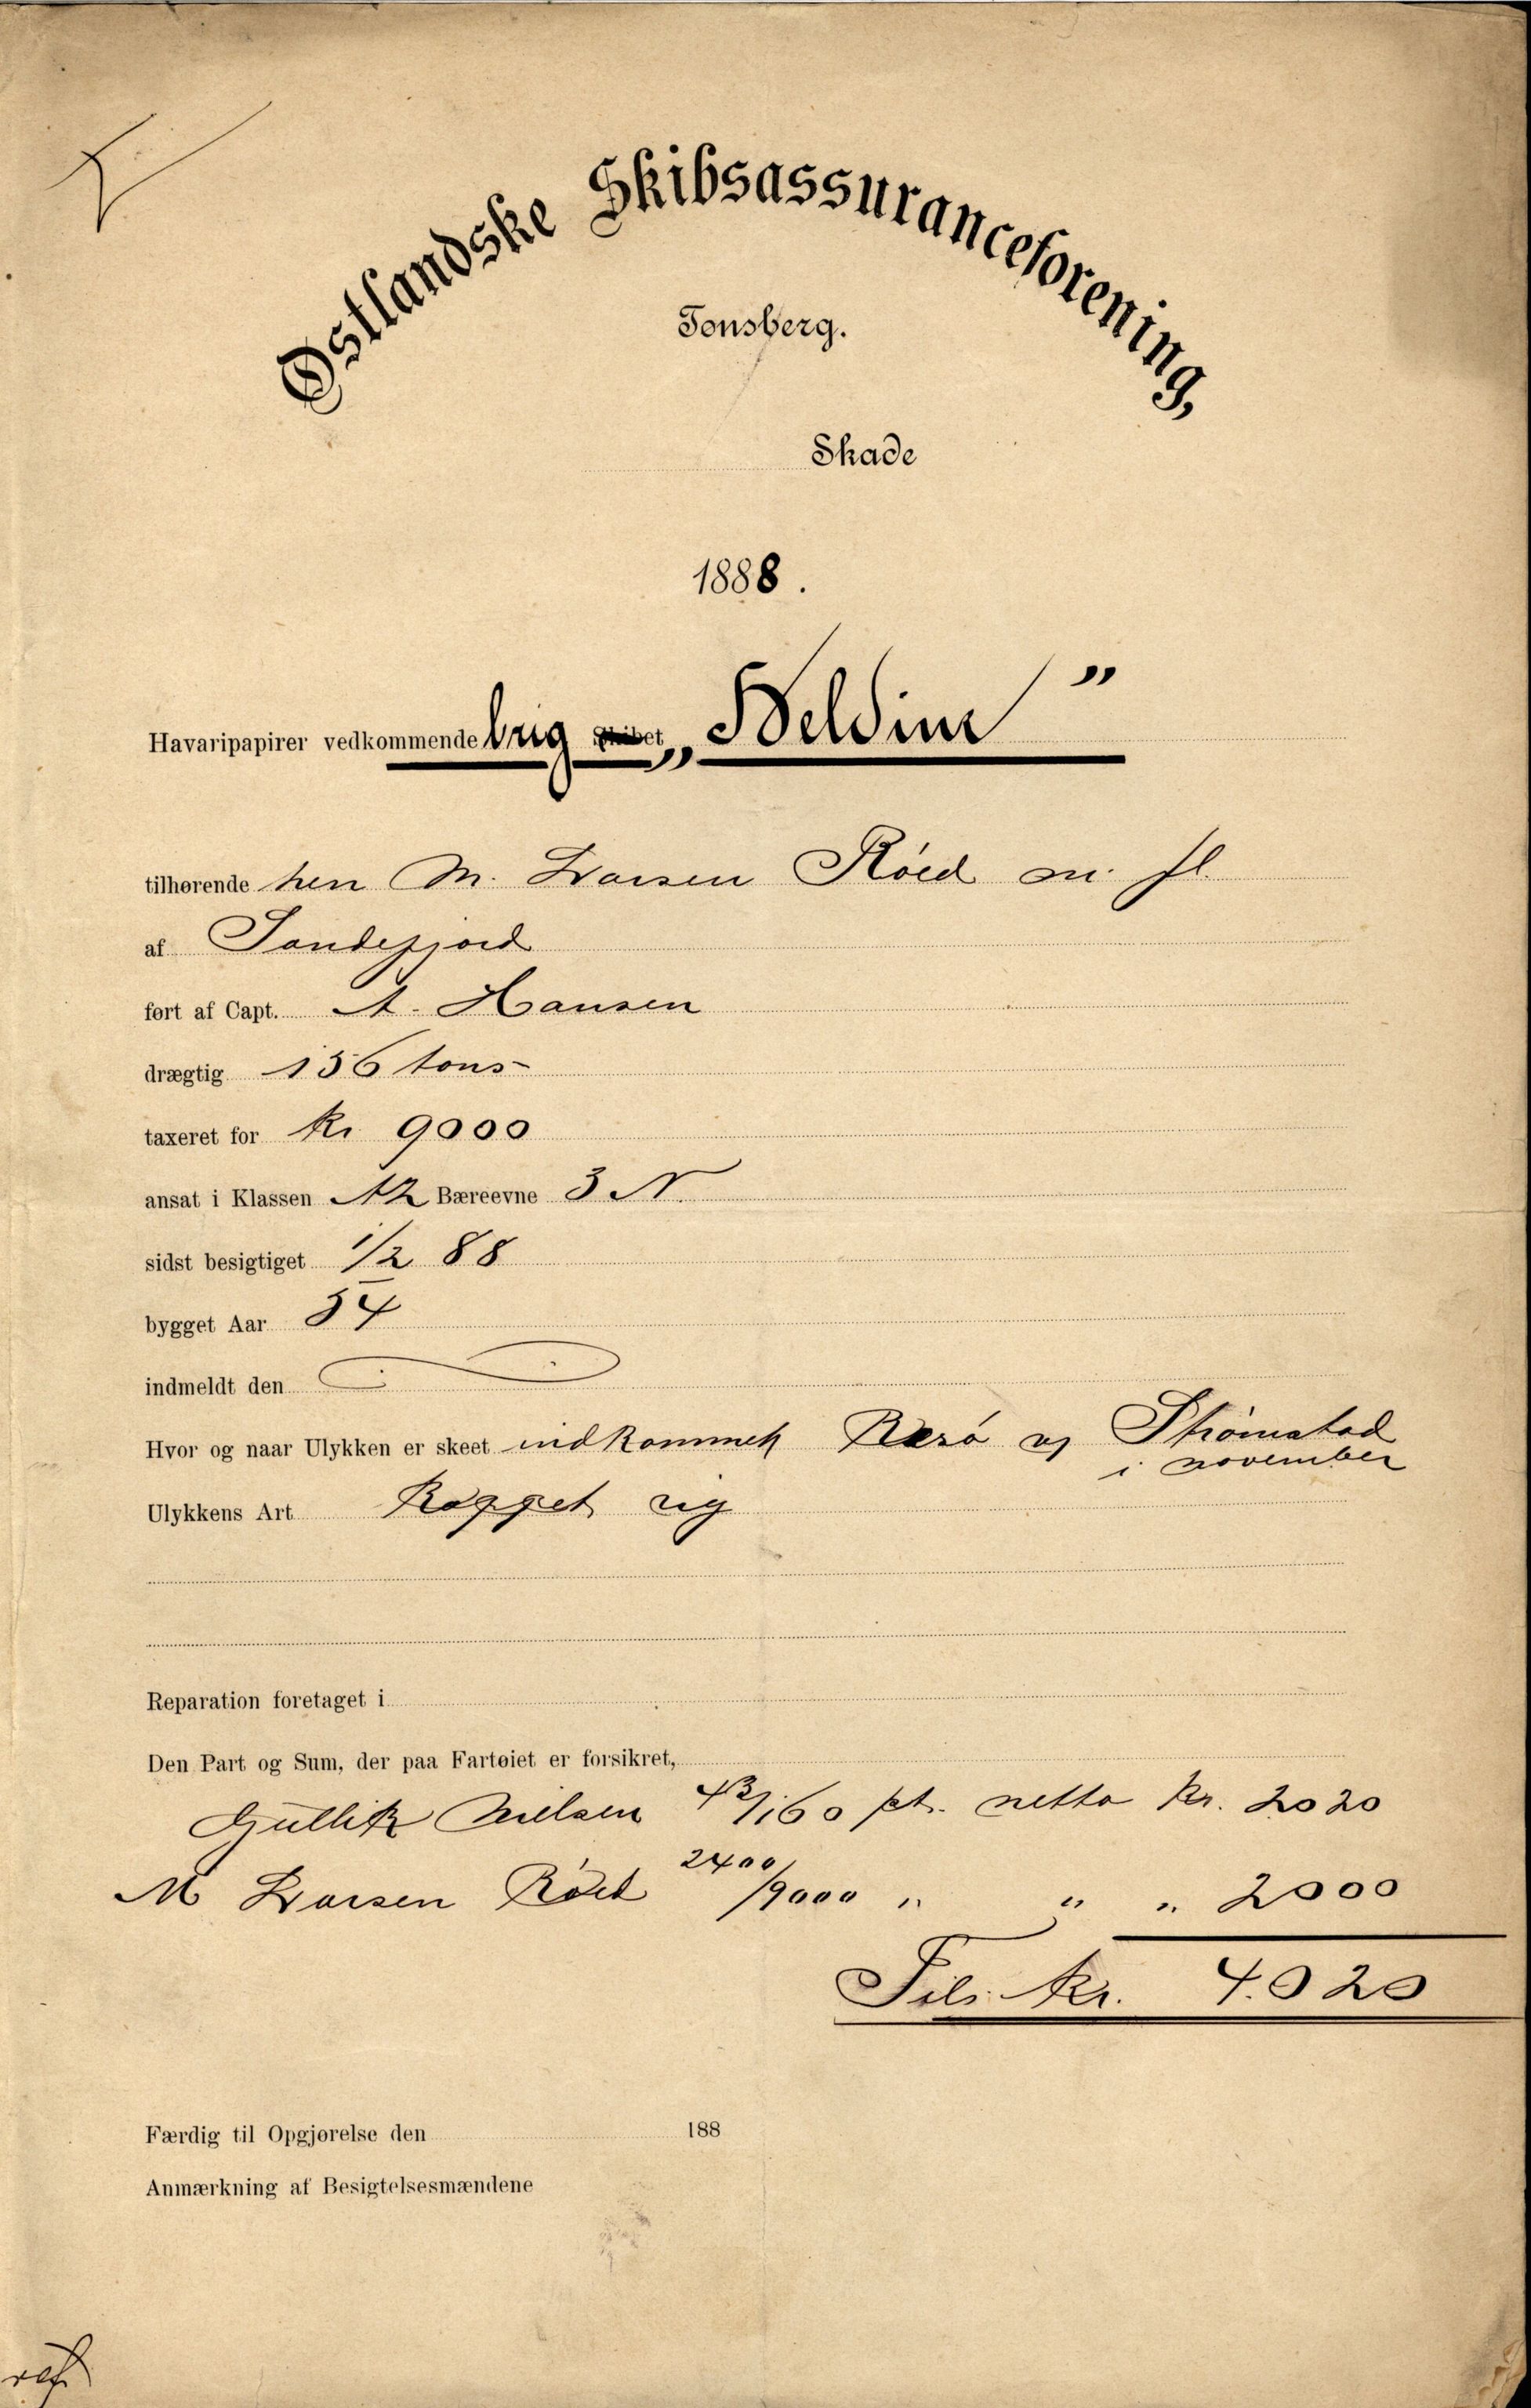 Østlandske Skibsassuranceforening,
Tønsberg.
Skade
1888.
Havaripapirer vedkommende brig Skibet „Beldine"
tilhørende herr M. Larsen Röed m. fl.
af Sandefjord
ført af Capt. A. Hansen
drægtig 156 tons
taxeret for Kr 9000
ansat i Klassen A2 Bæreevne 3 N.
sidst besigtiget 1/2 88
bygget Aar 54
indmeldt den
Hvor og naar Ulykken er skeet indkommet og Strömstad
i november
Ulykkens Art Kappet rig
Reparation foretaget i
Den Part og Sum, der paa Fartøiet er forsikret,
Gullik Nielsen 42/160 pt. netto Kr. 2020
M Larsen Röed 2400/9000 " " " 2000
Tils. Kr. 4.020
Færdig til Opgjørelse den 188
Anmærkning af Besigtelsesmændene